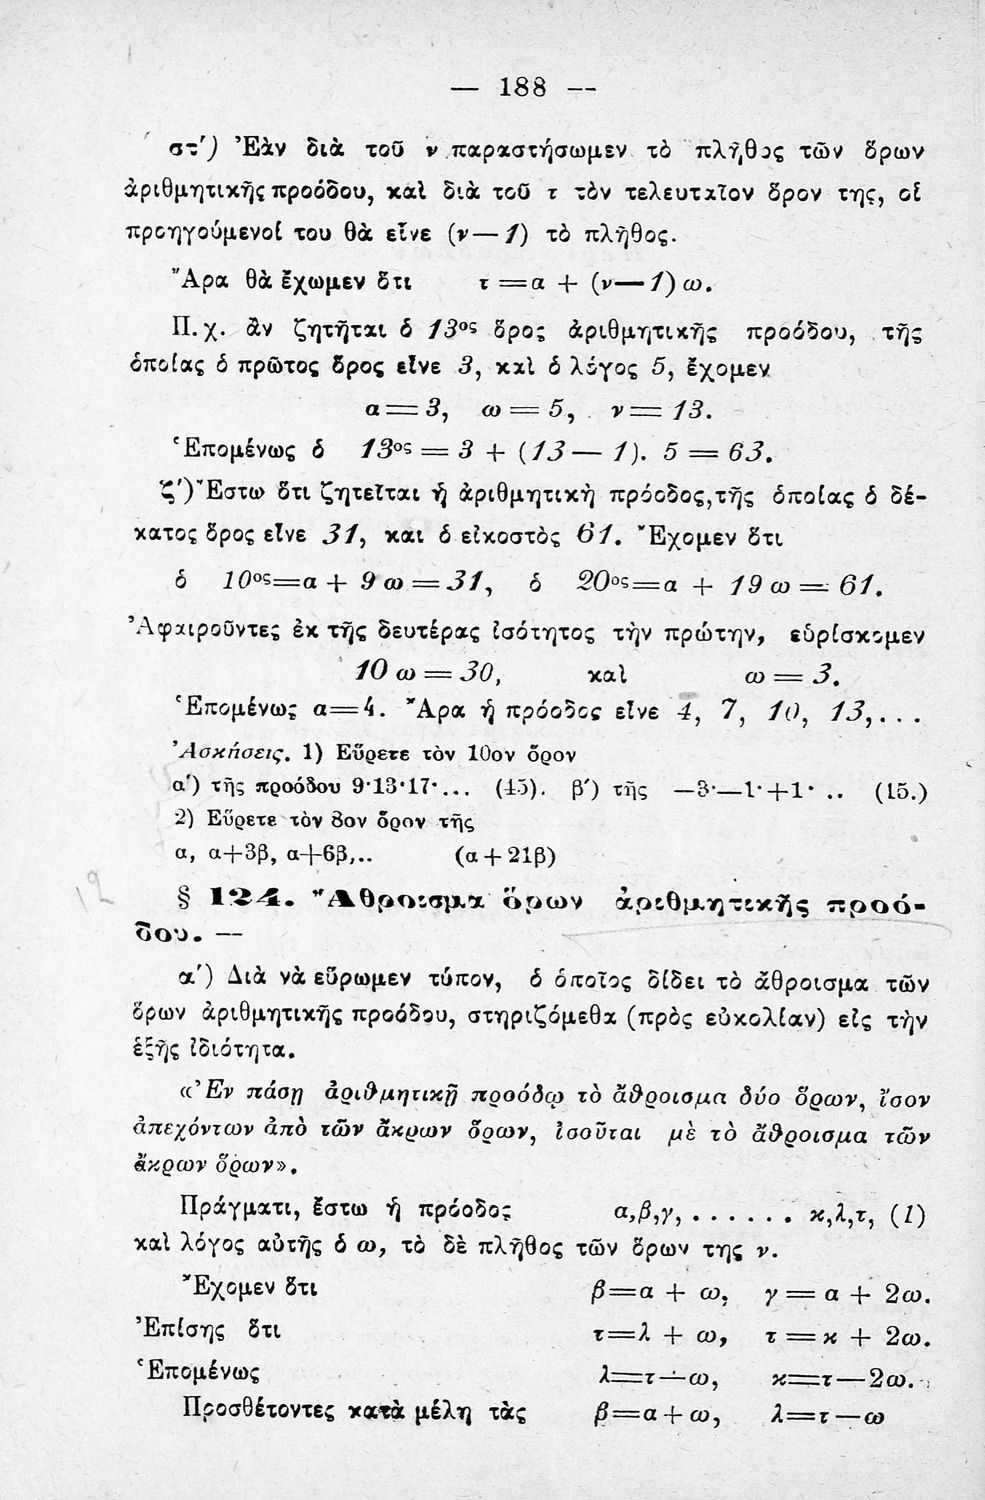 — 188 —
στ') Ἐὰν διὰ τοῦ ν παραστήσωμεν τὸ πλῆθος τῶν ὅρων
ἀριθμητικῆς προόδου, καὶ διὰ τοῦ τ τὸν τελευταῖον ὅρον της, οἱ
προηγούμενοί του θὰ εἶνε (ν—1) τὸ πλῆθος.
Ἄρα θὰ ἔχωμεν ὅτι τ=α + (ν—1) ω.
Π.χ. ἂν ζητῆται ὁ 13ος ὅρος ἀριθμητικῆς προόδου, τῆς
ὁποίας ὁ πρῶτος ὅρος εἶνε 3, καὶ ὁ λόγος 5, ἔχομεν
α=3, ω=5, ν=13.
Ἑπομένως ὁ 13ος = 3 + (13—1). 5 = 63.
ζ') Ἔστω ὅτι ζητεῖται ἡ ἀριθμητικὴ πρόοδος, τῆς ὁποίας ὁ δέ-
κατος ὅρος εἶνε 31, και ὁ εἰκοστὸς 61. Ἔχομεν ὅτι
ὁ 10ος=α + 9 ω = 31, ὁ 20ος=α + 19 ω = 61.
Ἀφαιροῦντες ἐκ τῆς δευτέρας ἰσότητος τὴν πρώτην, εὑρίσκομεν
10 ω = 30, καὶ ω = 3.
Ἑπομένως α=4. Ἄρα ἡ πρόοδος εἶνε 4, 7, 10, 13,...
Ἀσκήσεις. 1) Εὕρετε τὸν 10ον ὅρον
α') τῆς προόδου 9·13·17·... (45). β') τῆς —3·—1·+1· .. (15.)
2) Εὕρετε τὸν 8ον ὅρον τῆς
α, α+3β, α+6β,.. (α+21β)
12
§ 124. Ἄθροισμα ὅρων ἀριθμητικῆς προό-
δου. —
α') Διὰ νὰ εὕρωμεν τύπον, ὁ ὁποῖος δίδει τὸ ἄθροισμα τῶν
ὅρων ἀριθμητικῆς προόδου, στηριζόμεθα (πρὸς εὐκολίαν) εἰς τὴν
ἑξῆς ἰδιότητα.
«Ἐν πάσῃ ἀριθμητικῇ προόδῳ τὸ ἄθροισμα δύο ὅρων, ἴσον
ἀπεχόντων ἀπὸ τῶν ἄκρων ὅρων, ἰσοῦται μὲ τὸ ἄθροισμα τῶν
ἄκρων ὅρων».
Πράγματι, ἔστω ἡ πρόοδος α,β,γ, ...... κ,λ,τ, (1)
καὶ λόγος αὐτῆς ὁ ω, τὸ δὲ πλῆθος τῶν ὅρων της ν.
Ἔχομεν ὅτι β=α + ω, γ = α + 2ω.
Ἐπίσης ὅτι τ=λ + ω, τ = κ + 2ω.
Ἑπομένως λ=τ—ω, κ=τ—2ω.
Προσθέτοντες κατὰ μέλη τὰς β=α+ω, λ=τ—ω